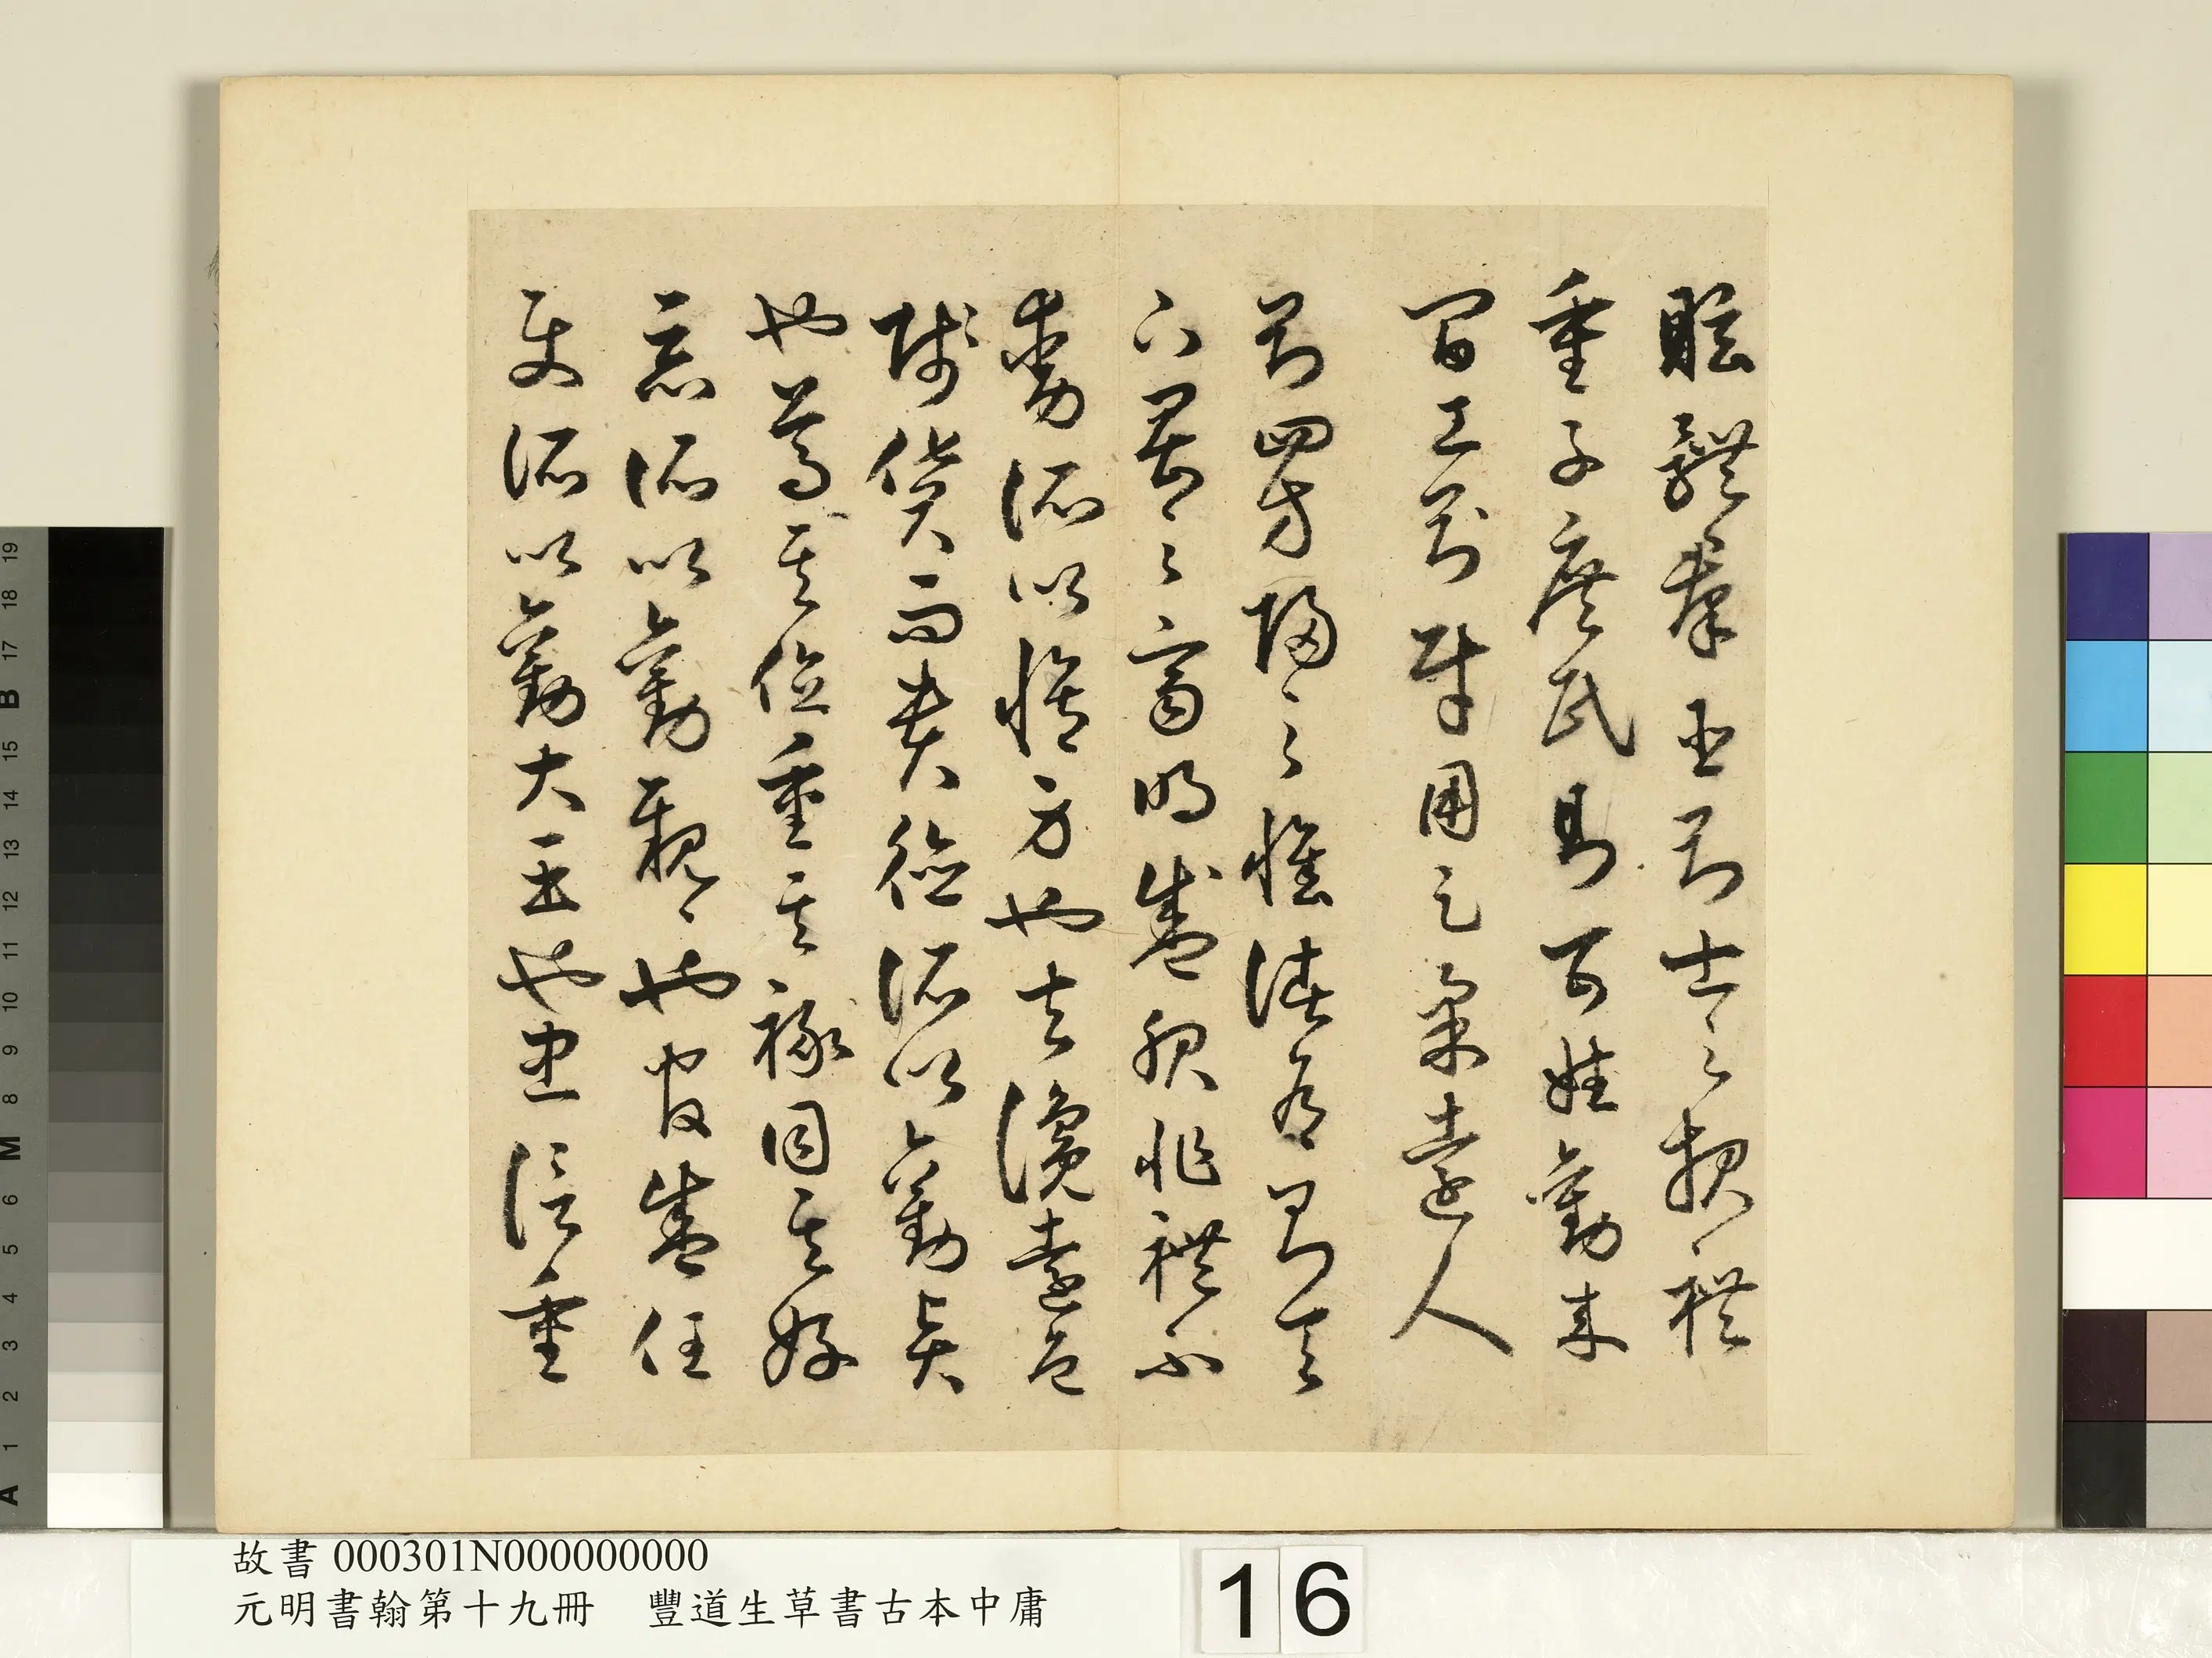 眩體羣臣則士之報禮
重子庶民則百姓勸来
百工則財用足柔遠人
則四方歸之懷諸侯則天
下畏之齊明盛服非禮不
動所以脩身也去讒遠色
賤貨而貴德所以勸賢
也尊其位重其祿同其好
惡所以勸親親也官盛任
使所以勸大臣也忠信重
故書 000301N000000000
元明書翰第十九冊 豐道生草書古本中庸
16
A 1 2 3 4 5 6 M 8 9 10 11 12 13 14 15 B 17 18 19